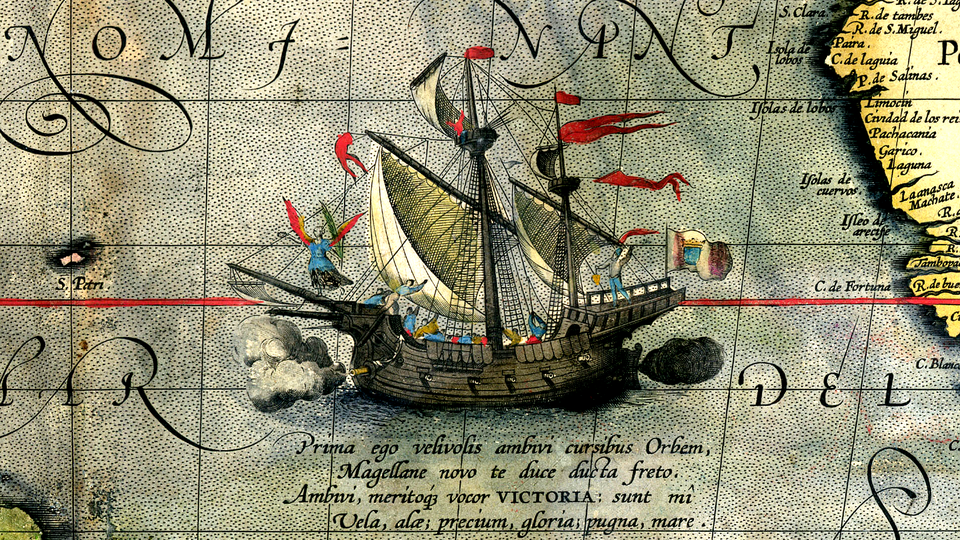 NOMI=NANT
S. Clara.
R. de S. Lu
R. de tambes
R. de S. Miguel.
Paira.
Isola de
lobos
C. de laguia
P
P. de Salinas.
Isolas de lobos
Limocin
Cividad de los rei
Pachacania
Garico.
Laguna
Isolas de
cuervos
Laanasca
Machate.
R. d
Isleo de
arecife
R.
R.
Tambopa
S. Petri
C. de Fortuna
R. de bue
C. Blanc
LAR
DEL
Prima ego velivolis ambivi cursibus Orbem,
Magellane novo te duce ducta freto.
Ambivi, meritoq3 vocor VICTORIA: sunt mî
Vela, alæ; precium, gloria; pugna, mare.